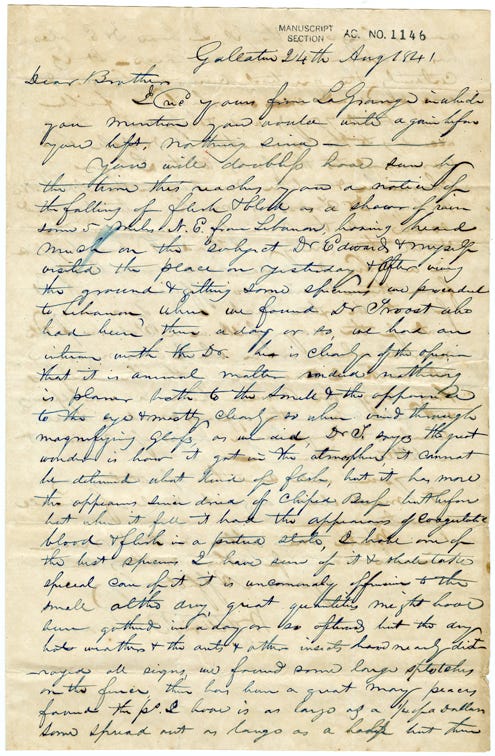 MANUSCRIPT
SECTION
AC. NO. 1146
Gallatin 24th Aug 1841
Dear Brother
I recd yours from LaGrange in which
you mention you would write again before
you left, nothing since —
You will doubtless have seen by
the time this reaches you a notice of
the falling of flesh & blood as a shower of rain
some 5 miles N. E. from Lebanon, having heard
much on the subject Dr Edwards & myself
visited the place on yesterday & after viewing
the ground & gitting some specimens we proceeded
to Lebanon when we found Dr Troost who
had been there a day or so we had an
interview with the Dr. he is clearly of the opinion
that it is animal matter indeed nothing
is plainer both to the smell & the appearance
to the eye & mostly clearly so when view'd through
magnifying Glass, as we did, Dr T. says the great
wonder is how it got in the atmosphere it cannot
be determined what kind of flesh, but it has more
the appearance since dried of Chip'd Beef but before
that when it fell it had the appearance of Coagulated
blood & flesh in a putrid state, I have one of
the best specimens I have seen of it & shall take
special care of it it is uncommonly offensive to the
smell altho dry, great quantities might have
been gathered in a day or so after but the dry
hot weather & the ants & other insects have nearly dist
royed all signs, we found some large splotches
on the fence, there has been a great many peaces
found the ps. I have is as large as a dollar
some spread out as large as a but then